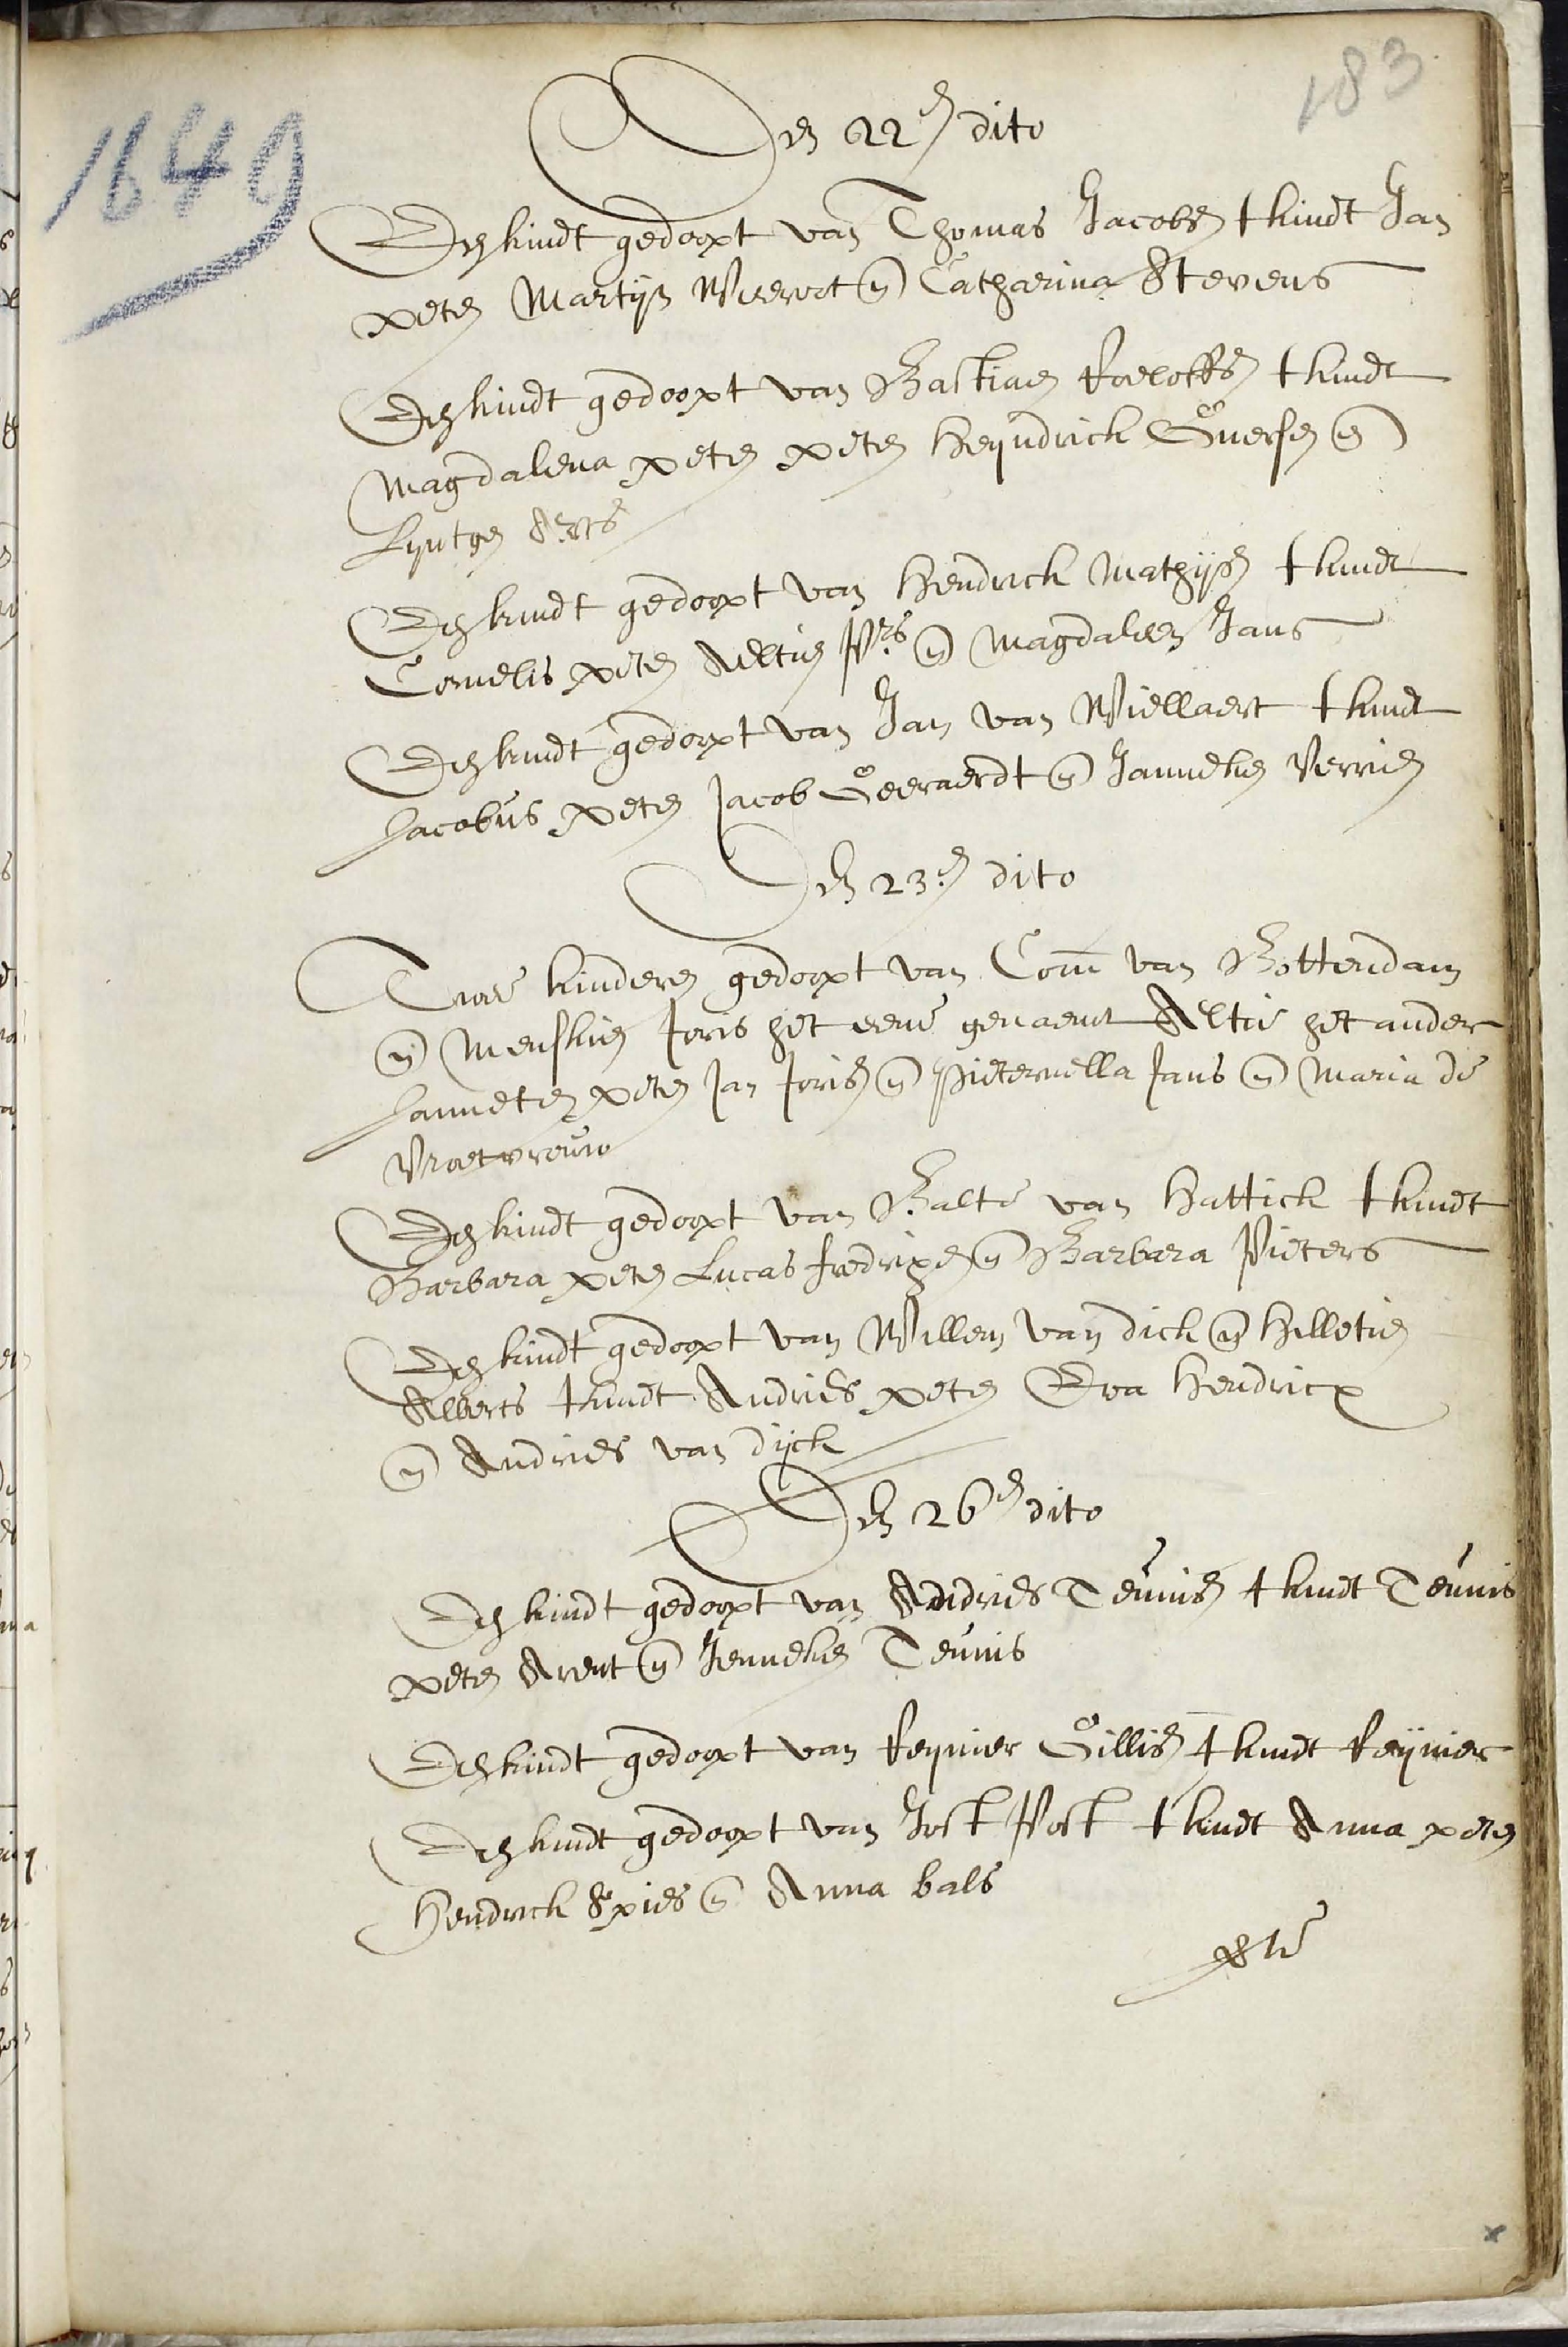 183
1649
Den 22en dito
Een kindt gedoopt van Thomas Jacobsen t kindt Jan
peten Martijn en Catharina Stevens
Een kindt gedoopt van Bastiaen Roeloffsen t kindt
Magdalena peten peten Heyndrick Goversen en
Lyntgen
Een kindt gedoopt van Hendrick Mathijsen t kindt
Cornelis peten Aeltien Prs en Magdaleen Jans
Een kindt gedoopt van Jan van Wiellaert t kindt
Jacobus peten Jacob Geeraerdt en Janneken Verrien
Den 23en dito
Twee kinderen gedoopt van Corn van Bottendam
en Mensken Joris het eene genaemt Altie het ander
Janneten peten Jan Jorisen en Pieternella Jans en Maria de
Vroetvrouw
Een kindt gedoopt van Balte van Hattich t kindt
Barbara peten Lucas fredrixen en Barbara Pieters
Een kindt gedoopt van Willem van dick en Hilletien
Alberts t kindt Andries peten Eva Hendricx
en Andries van dijck
Den 26en dito
Een kindt gedoopt van Andries Teunisen t kindt Teunis
peten Arent en Jenneken Teunis
Een kindt gedoopt van Reynier Gillisen t kindt Reijnier
Een kindt gedoopt van Jost Post t kindt Anna peten
Hendrick Spies en Anna bals